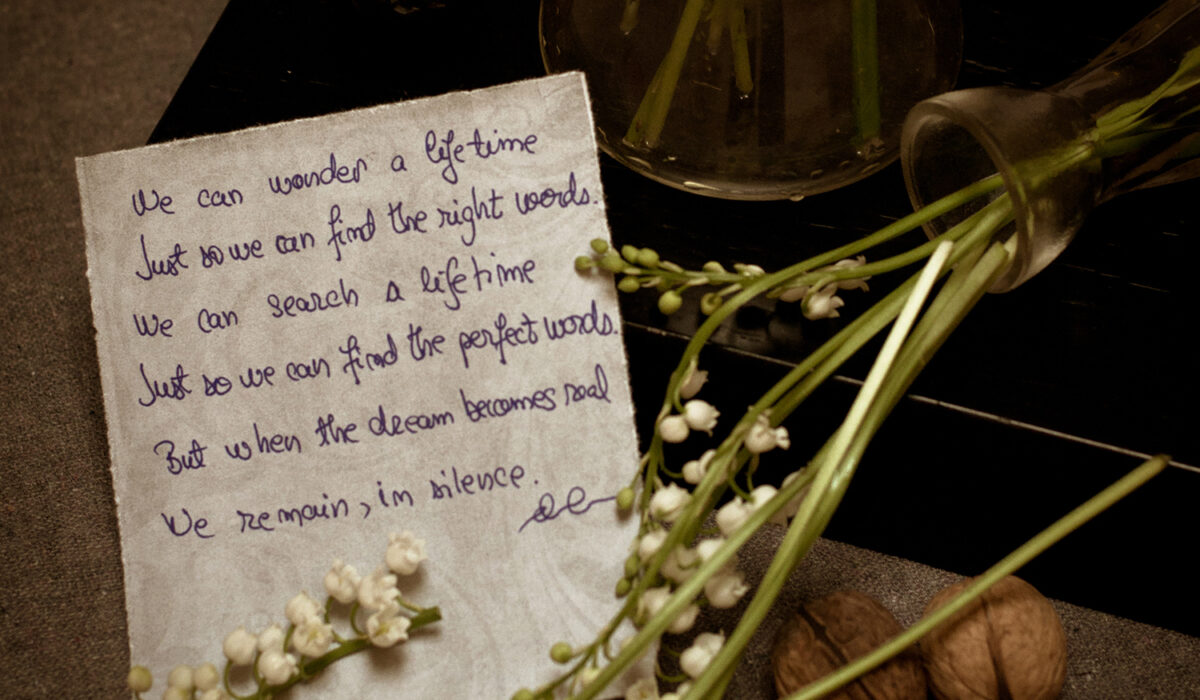 We can wonder a lifetime
Just so we can find the right words.
We can search a lifetime
Just so we can find the perfect words.
But when the dream becomes real
We remain, in silence.